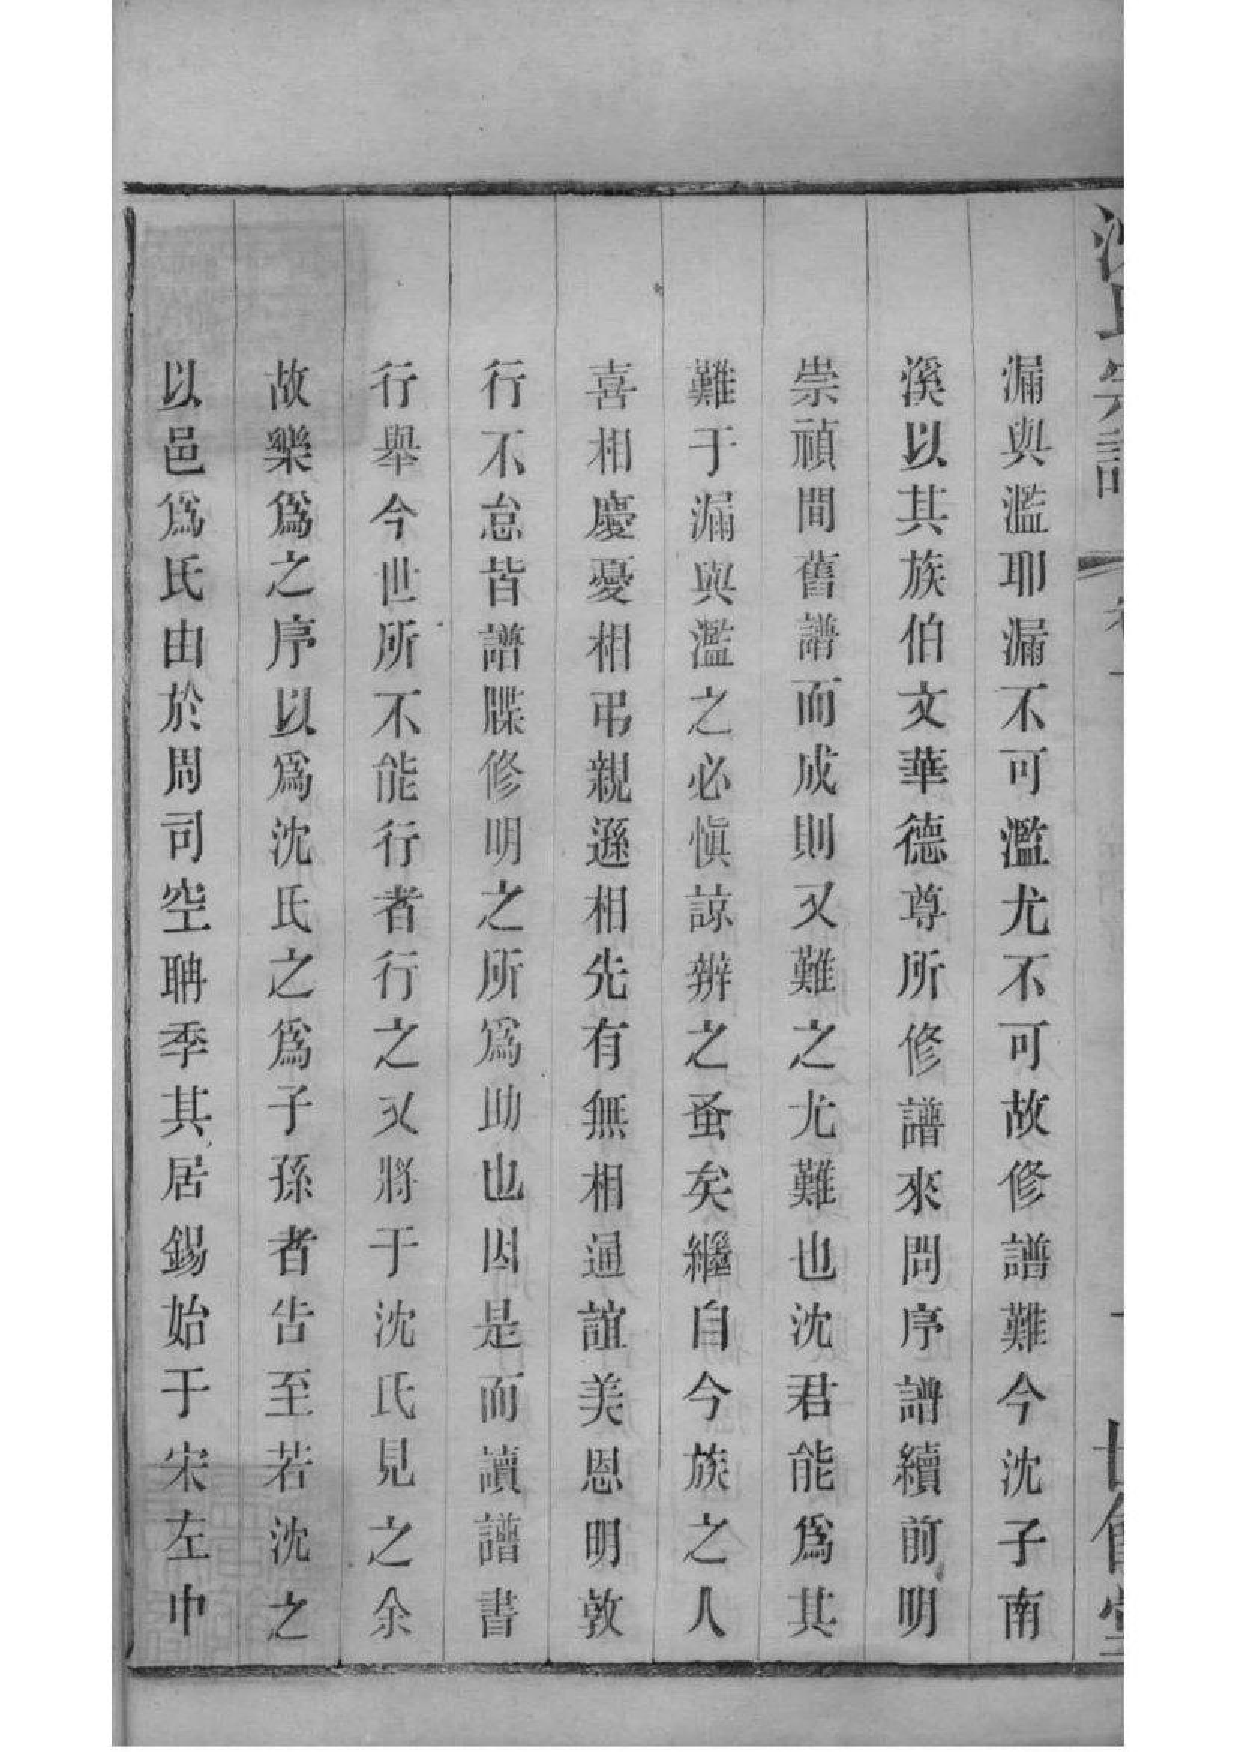 沈氏宗譜 卷一 一 世伯堂
漏與濫耶漏不可濫尤不可故修譜難今沈子南
溪以其族伯文華德尊所修譜來問序譜續前明
崇禎間舊譜而成則又難之尤難也沈君能爲其
難于漏與濫之必愼諒辨之蚤矣繼自今族之人
喜相慶憂相弔親遜相先有無相通誼美恩明敦
行不怠皆譜牒修明之所爲助也因是而讀譜書
行舉今世所不能行者行之又將于沈氏見之余
故樂爲之序以爲沈氏之爲子孫者告至若沈之
以邑爲氏由於周司空聃季其居錫始于宋左中